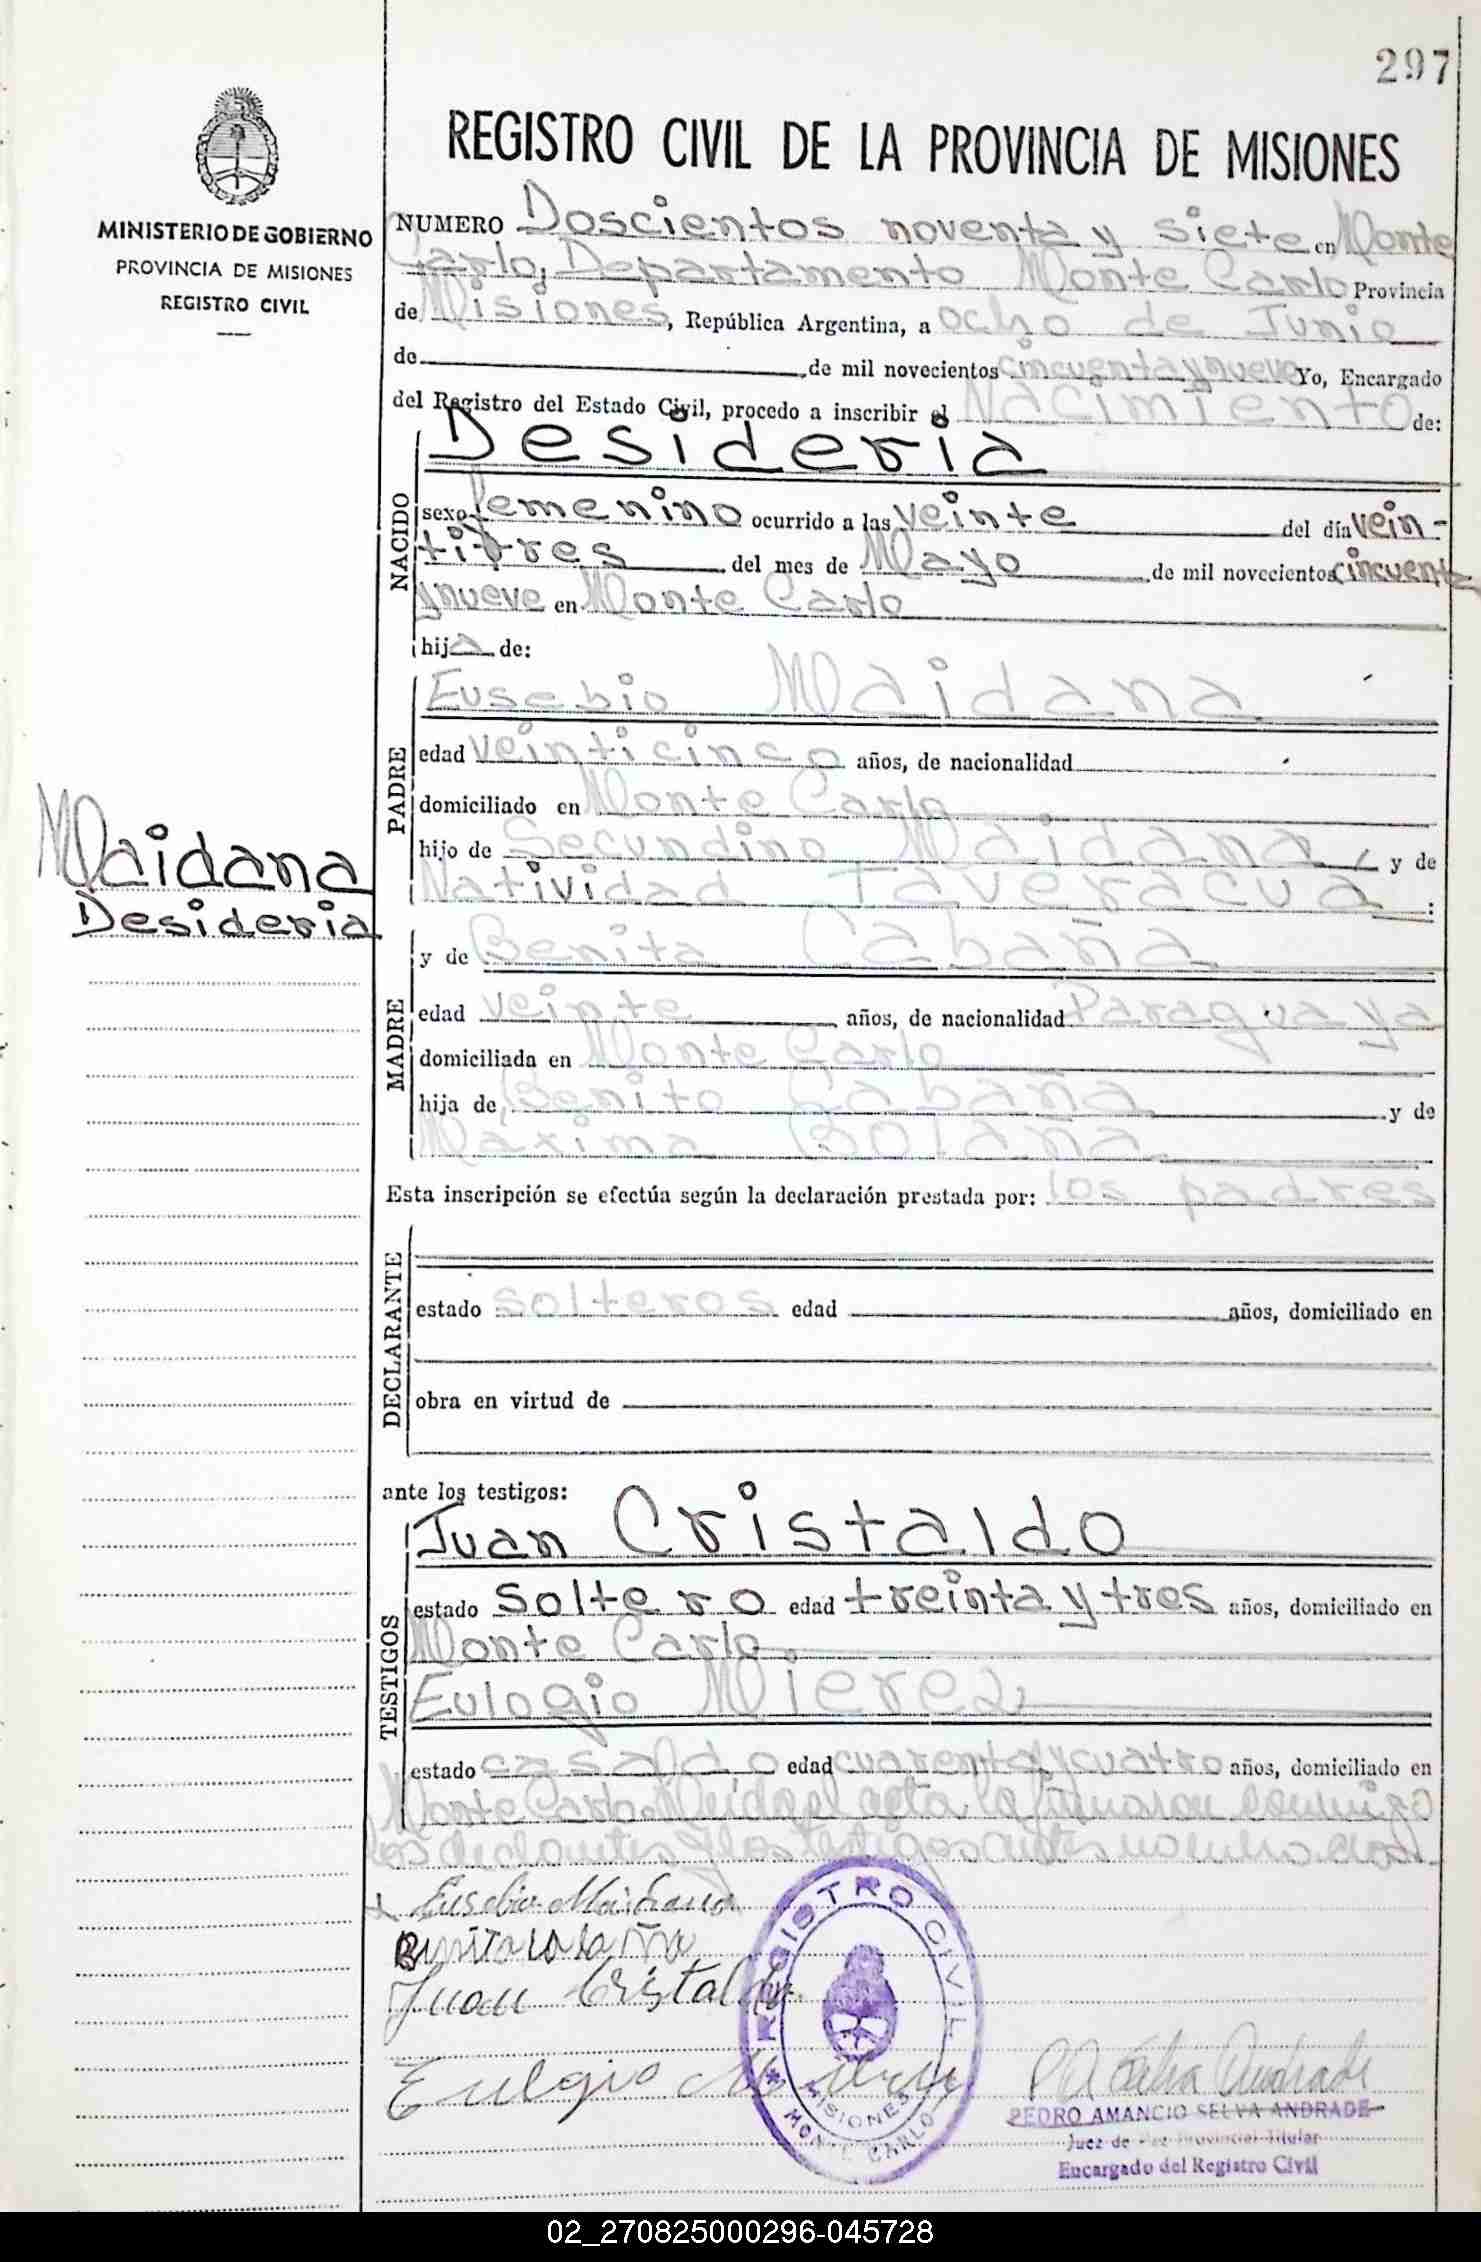 297
REGISTRO CIVIL DE LA PROVINCIA DE MISIONES
MINISTERIO DE GOBIERNO
PROVINCIA DE MISIONES
REGISTRO CIVIL
NUMERO Doscientos noventa y siete en Monte
Carlo, Departamento Monte Carlo Provincia
de Misiones, República Argentina, a ocho de Junio
de de mil novecientos cincuenta y nueve Yo, Encargado
del Registro del Estado Civil, procedo a inscribir el Nacimiento de:
Desideria
NACIDO
sexo femenino ocurrido a las veinte del día vein-
titres del mes de Mayo de mil novecientos cincuenta
y nueve en Monte Carlo
hija de:
PADRE
Eusebio Maidana
edad veinticinco años, de nacionalidad
domiciliado en Monte Carlo
hijo de Secundino Maidana y de
Natividad Taveracua:
Maidana
Desideria
MADRE
y de Benita Cabaña
edad veinte años, de nacionalidad Paraguaya
domiciliada en Monte Carlo
hija de Benito Cabaña y de
Maxima Bolaña
Esta inscripción se efectúa según la declaración prestada por: los padres
DECLARANTE
estado solteros edad años, domiciliado en
obra en virtud de
ante los testigos:
TESTIGOS
Juan Cristaldo
estado soltero edad treinta y tres años, domiciliado en
Monte Carlo
Eulogio Mierez
estado casado edad cuarenta y cuatro años, domiciliado en
Monte Carlo. Leida el acta la firmaron conmigo
los declarantes y los testigos antes nombrados.
Eusebio Maidana
Benita Cabaña
Juan Cristaldo
Eulgio
REGISTRO CIVIL
MISIONES
MONTE CARLO
P A Selva Andrade
PEDRO AMANCIO SELVA ANDRADE
Juez de Paz Provincial Titular
Encargado del Registro Civil
02_270825000296-045728